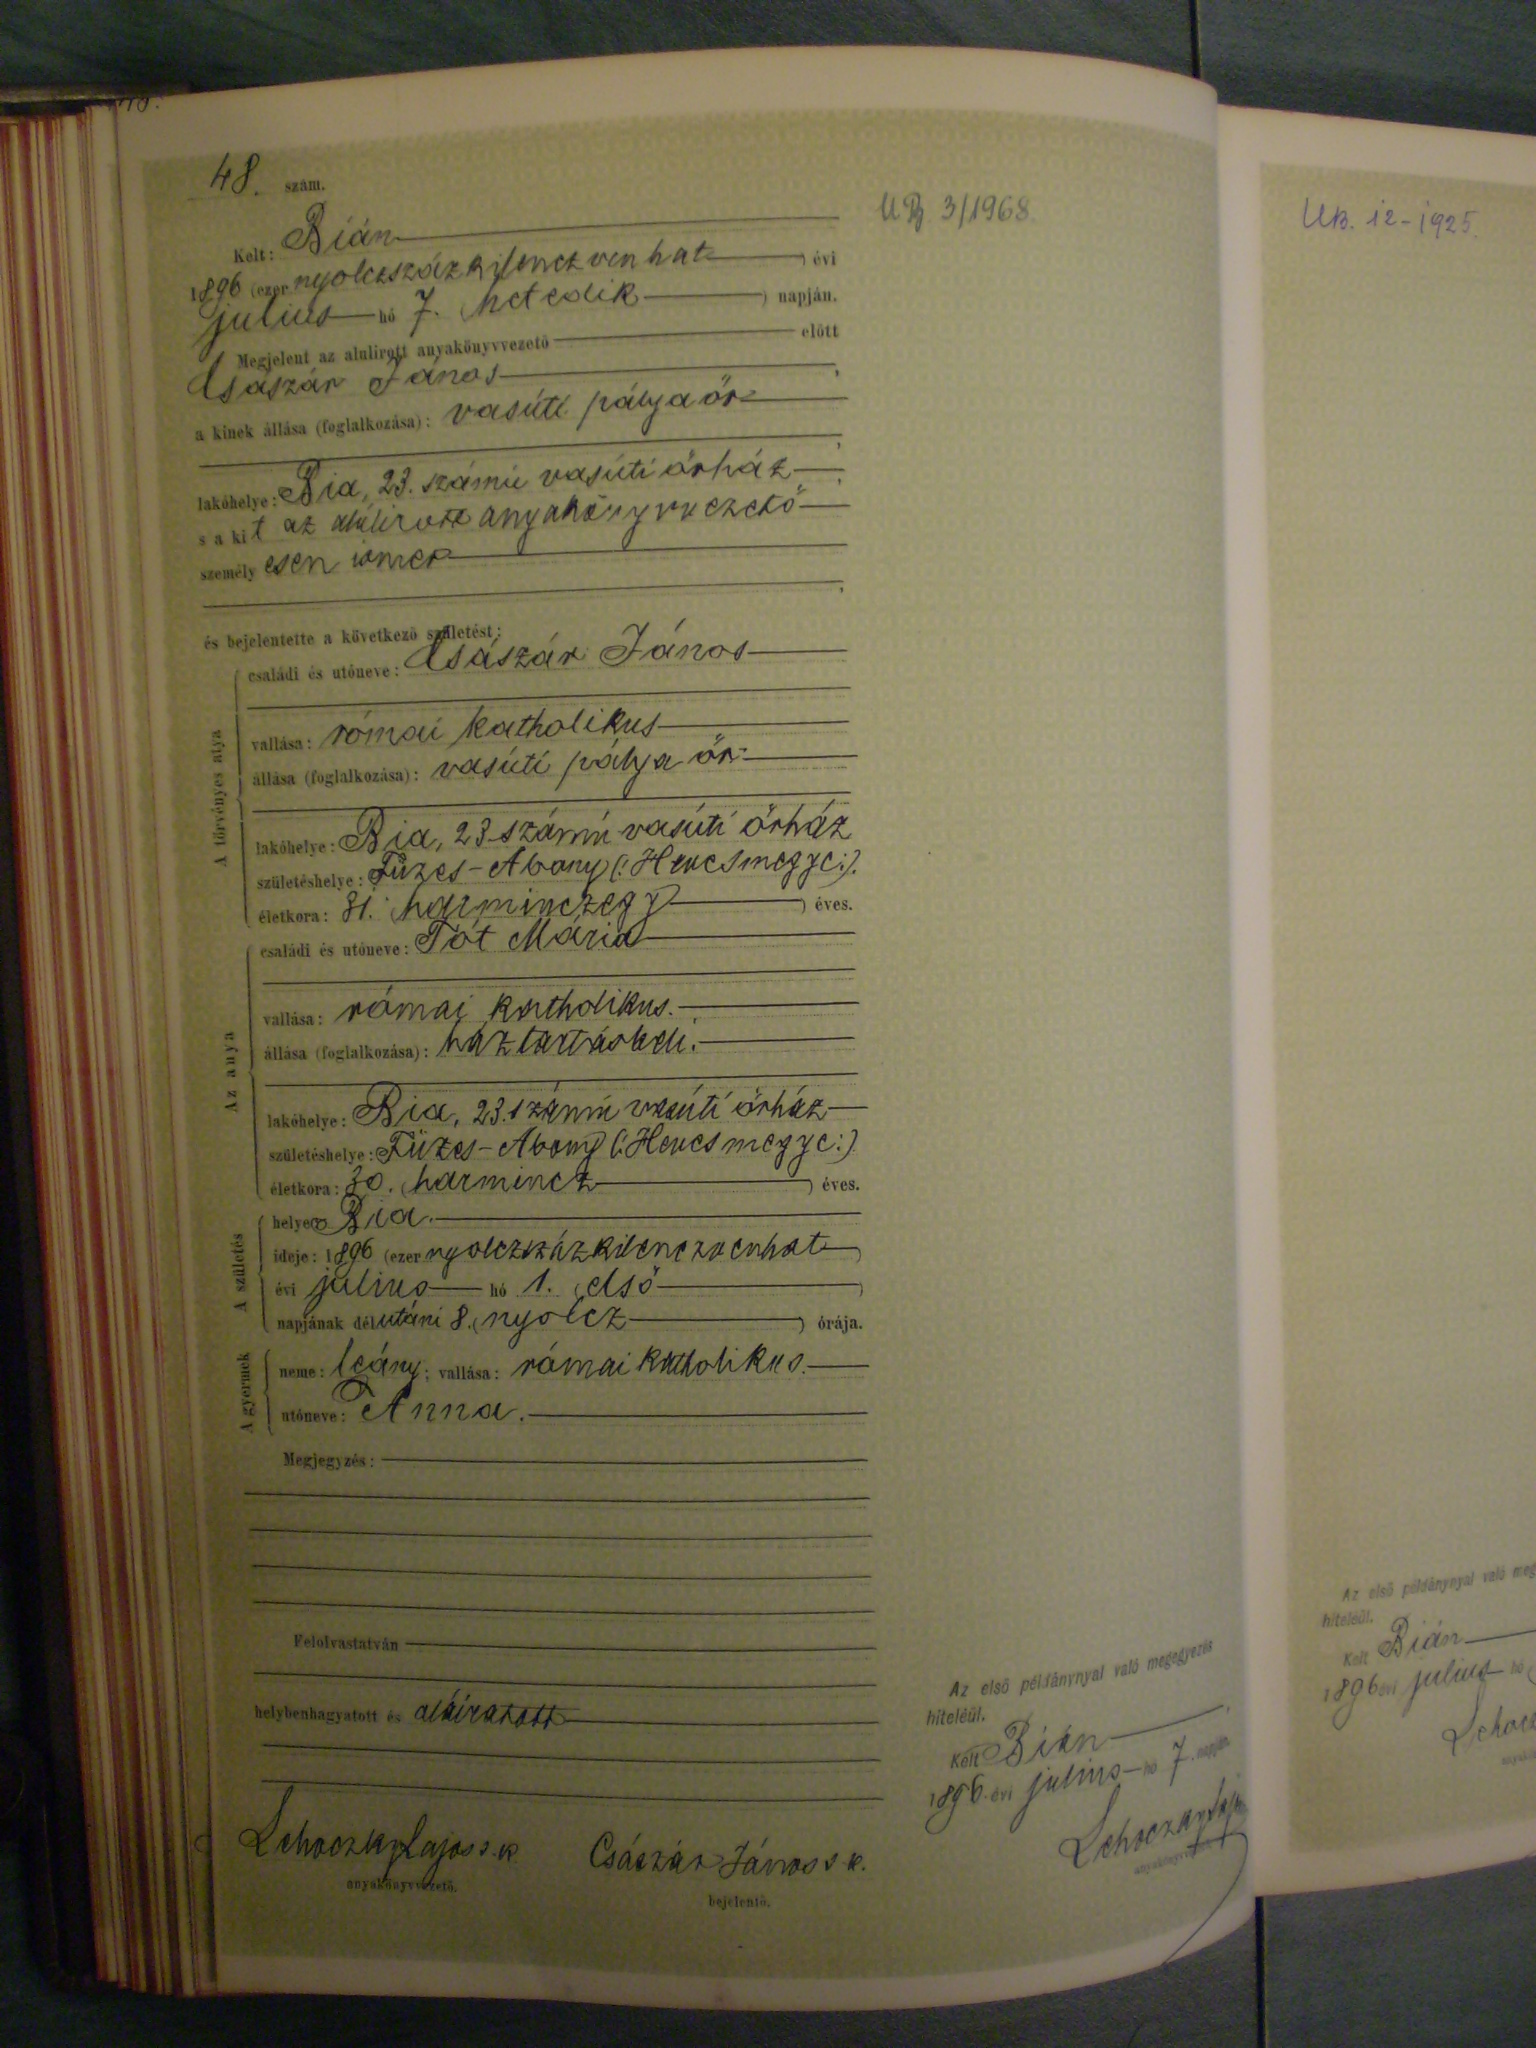 48. szám.
UB 3/1968
Kelt: Bián
1896 (ezer nyolczszázkilenczvenhat) évi
julius hó 7. (hetedik) napján.
Megjelent az alulirott anyakönyvvezető előtt
Császár János,
a kinek állása (foglalkozása): vasúti pályaőr
,
lakóhelye: Bia, 23. számú vasúti őrház,
s a kit az alulirott anyakönyvvezető
személyesen ismer
,
és bejelentette a következő születést:
A törvényes atya
családi és utóneve: Császár János
vallása: római katholikus
állása (foglalkozása): vasúti pályaőr
lakóhelye: Bia, 23 számú vasúti őrház
születéshelye: Füzes-Abony (:Hevesmegye:).
életkora: 31. (harminczegy) éves.
Az anya
családi és utóneve: Tót Mária
vallása: római katholikus.
állása (foglalkozása): háztartásbeli.
lakóhelye: Bia, 23. számú vasúti őrház
születéshelye: Füzes-Abony (:Hevesmegye:)
életkora: 30. (harmincz) éves.
A születés
helye: Bia.
ideje: 1896 (ezer nyolczszázkilenczvenhat)
évi julius hó 1. (első)
napjának délutáni 8. (nyolcz) órája.
A gyermek
neme: leány; vallása: római katholikus.
utóneve: Anna.
Megjegyzés:
Felolvastatván
helybenhagyatott és aláiratott
Lehoczky Lajos s. k.
anyakönyvvezető.
Császár János s. k.
bejelentő.
Az első példánynyal való megegyezés
hiteléül.
Kelt Bián
1896. évi julius hó 7. napján.
Lehoczky Lajos
anyakönyvvezető
UB. 12-1925.
Az első példánynyal való meg
hiteléül.
Kelt Bián
1896 évi julius hó
Lehocz